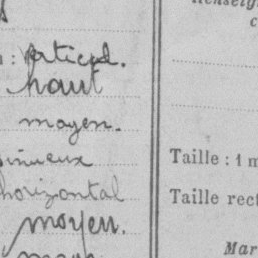 : vertical.
haut
moyen.
sinueux
horizontal
moyen.
Taille : 1 m
Taille rect
Mar